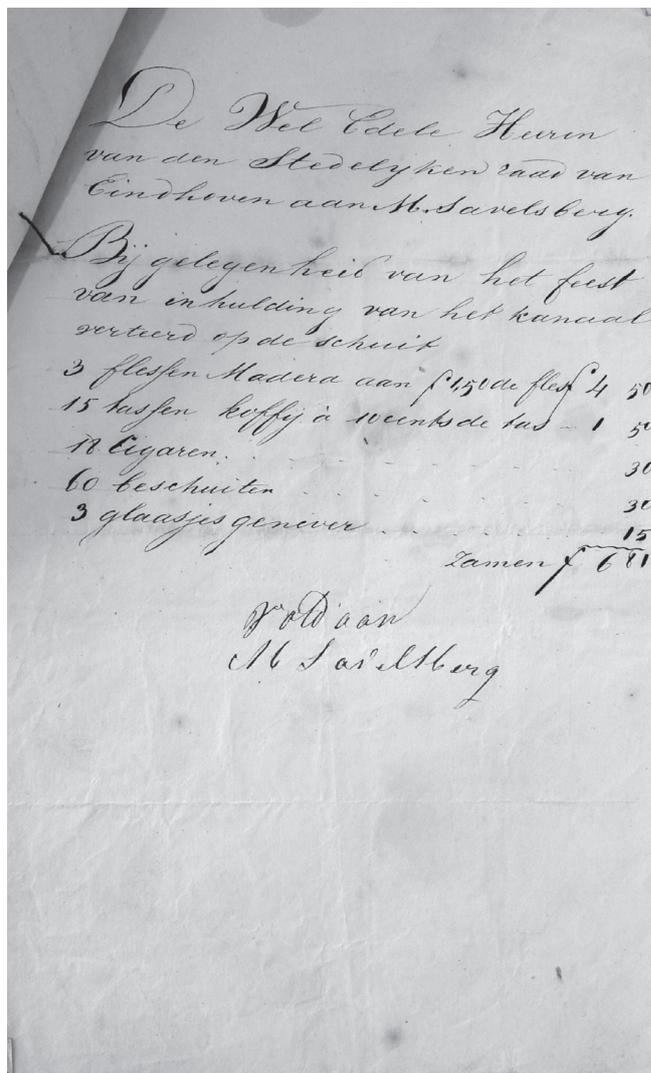 De Wel Edele Heeren
van den Stedelyken raad van
Eindhoven aan M. Savelsberg.
Bij gelegenheid van het feest
van inhulding van het kanaal
verteerd op de schuit
3 flessen Madera aan f 1,50 de fles f 4 50
15 tassen koffij à 10 cents de tas - 1 50
18 Cigaren. . . . . . . 30
60 beschuiten . . . . . . 30
3 glaasjes genever . . . . . . 15
Zamen f 6 81
Voldaan
M Savelsberg